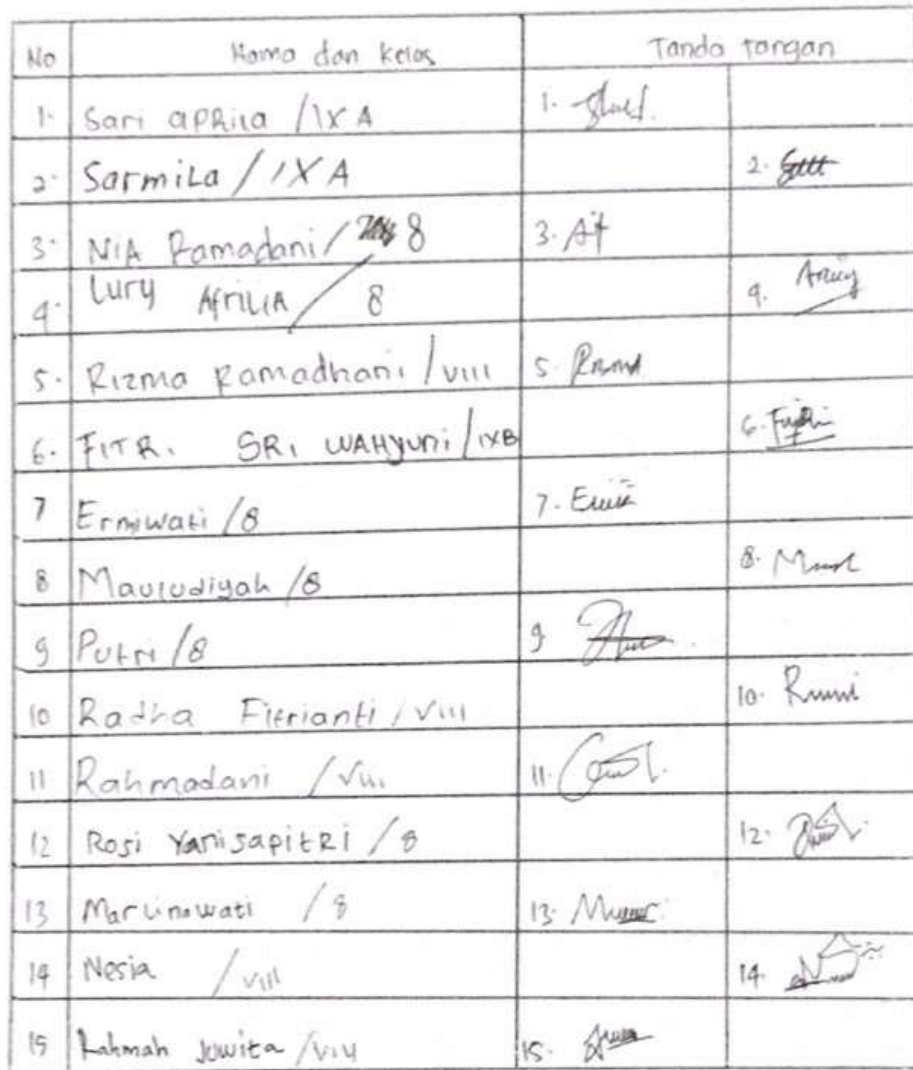 No Nama dan Kelas Tanda tangan
1. Sari aPRiLa /IX A 1.
2. SarmiLa / IX A 2.
3. NIA Ramadani / 8 3. Af
4. Lury AfriLIA / 8 4.
5. Rizma Ramadhani / VIII 5.
6. FITRI SRI WAHyuni / IXB 6.
7 Erniwati /8 7.
8 Mauludiyah /8 8.
9 Putri /8 9
10 Radha Fitrianti / VIII 10.
11 Rahmadani / VIII 11.
12 Rosi YanisapitRi / 8 12.
13 Marlinawati / 8 13.
14 Nesia / VIII 14.
15 Rahmah Juwita / VIII 15.